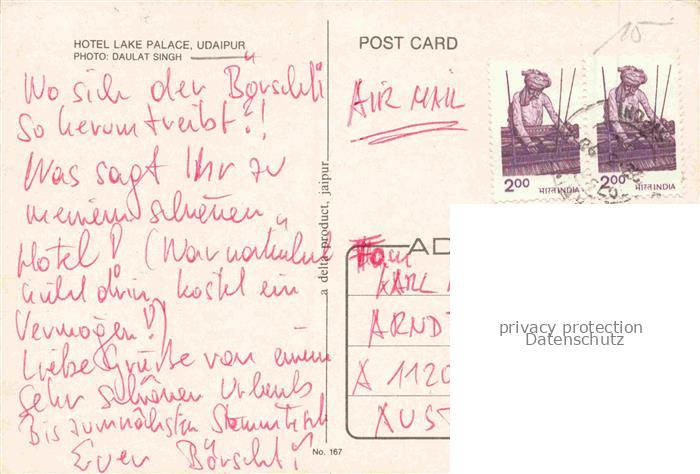 HOTEL LAKE PALACE, UDAIPUR
PHOTO: DAULAT SINGH
Wo sich der Börschti
so herumtreibt?!
Was sagt Ihr zu
meinem schönen
Hotel? (War natürlich
nicht drin, kostet ein
Vermögen!)
Liebe Grüße von einem
sehr schönen Urlaub
Bis zum nächsten Stammtisch
Euer Börschti
a delta product, jaipur
No. 167
POST CARD
15
AIR MAIL
2.00 भारत INDIA
2.00 भारत INDIA
AD
KARL
ARND
A 1120
AUST
privacy protection
Datenschutz